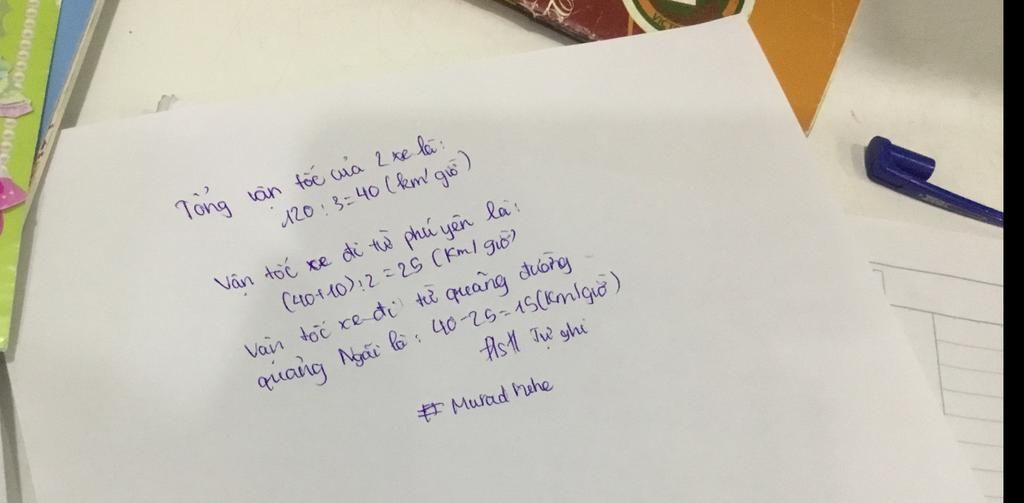 Tổng vận tốc của 2 xe là:
120 : 3 = 40 (km/giờ)
Vận tốc xe đi từ phú yên là:
(40+10) : 2 = 25 (Km/giờ)
Vận tốc xe đi từ quãng đường
quảng Ngãi là: 40-25=15(Km/giờ)
Tự ghi
# Murad